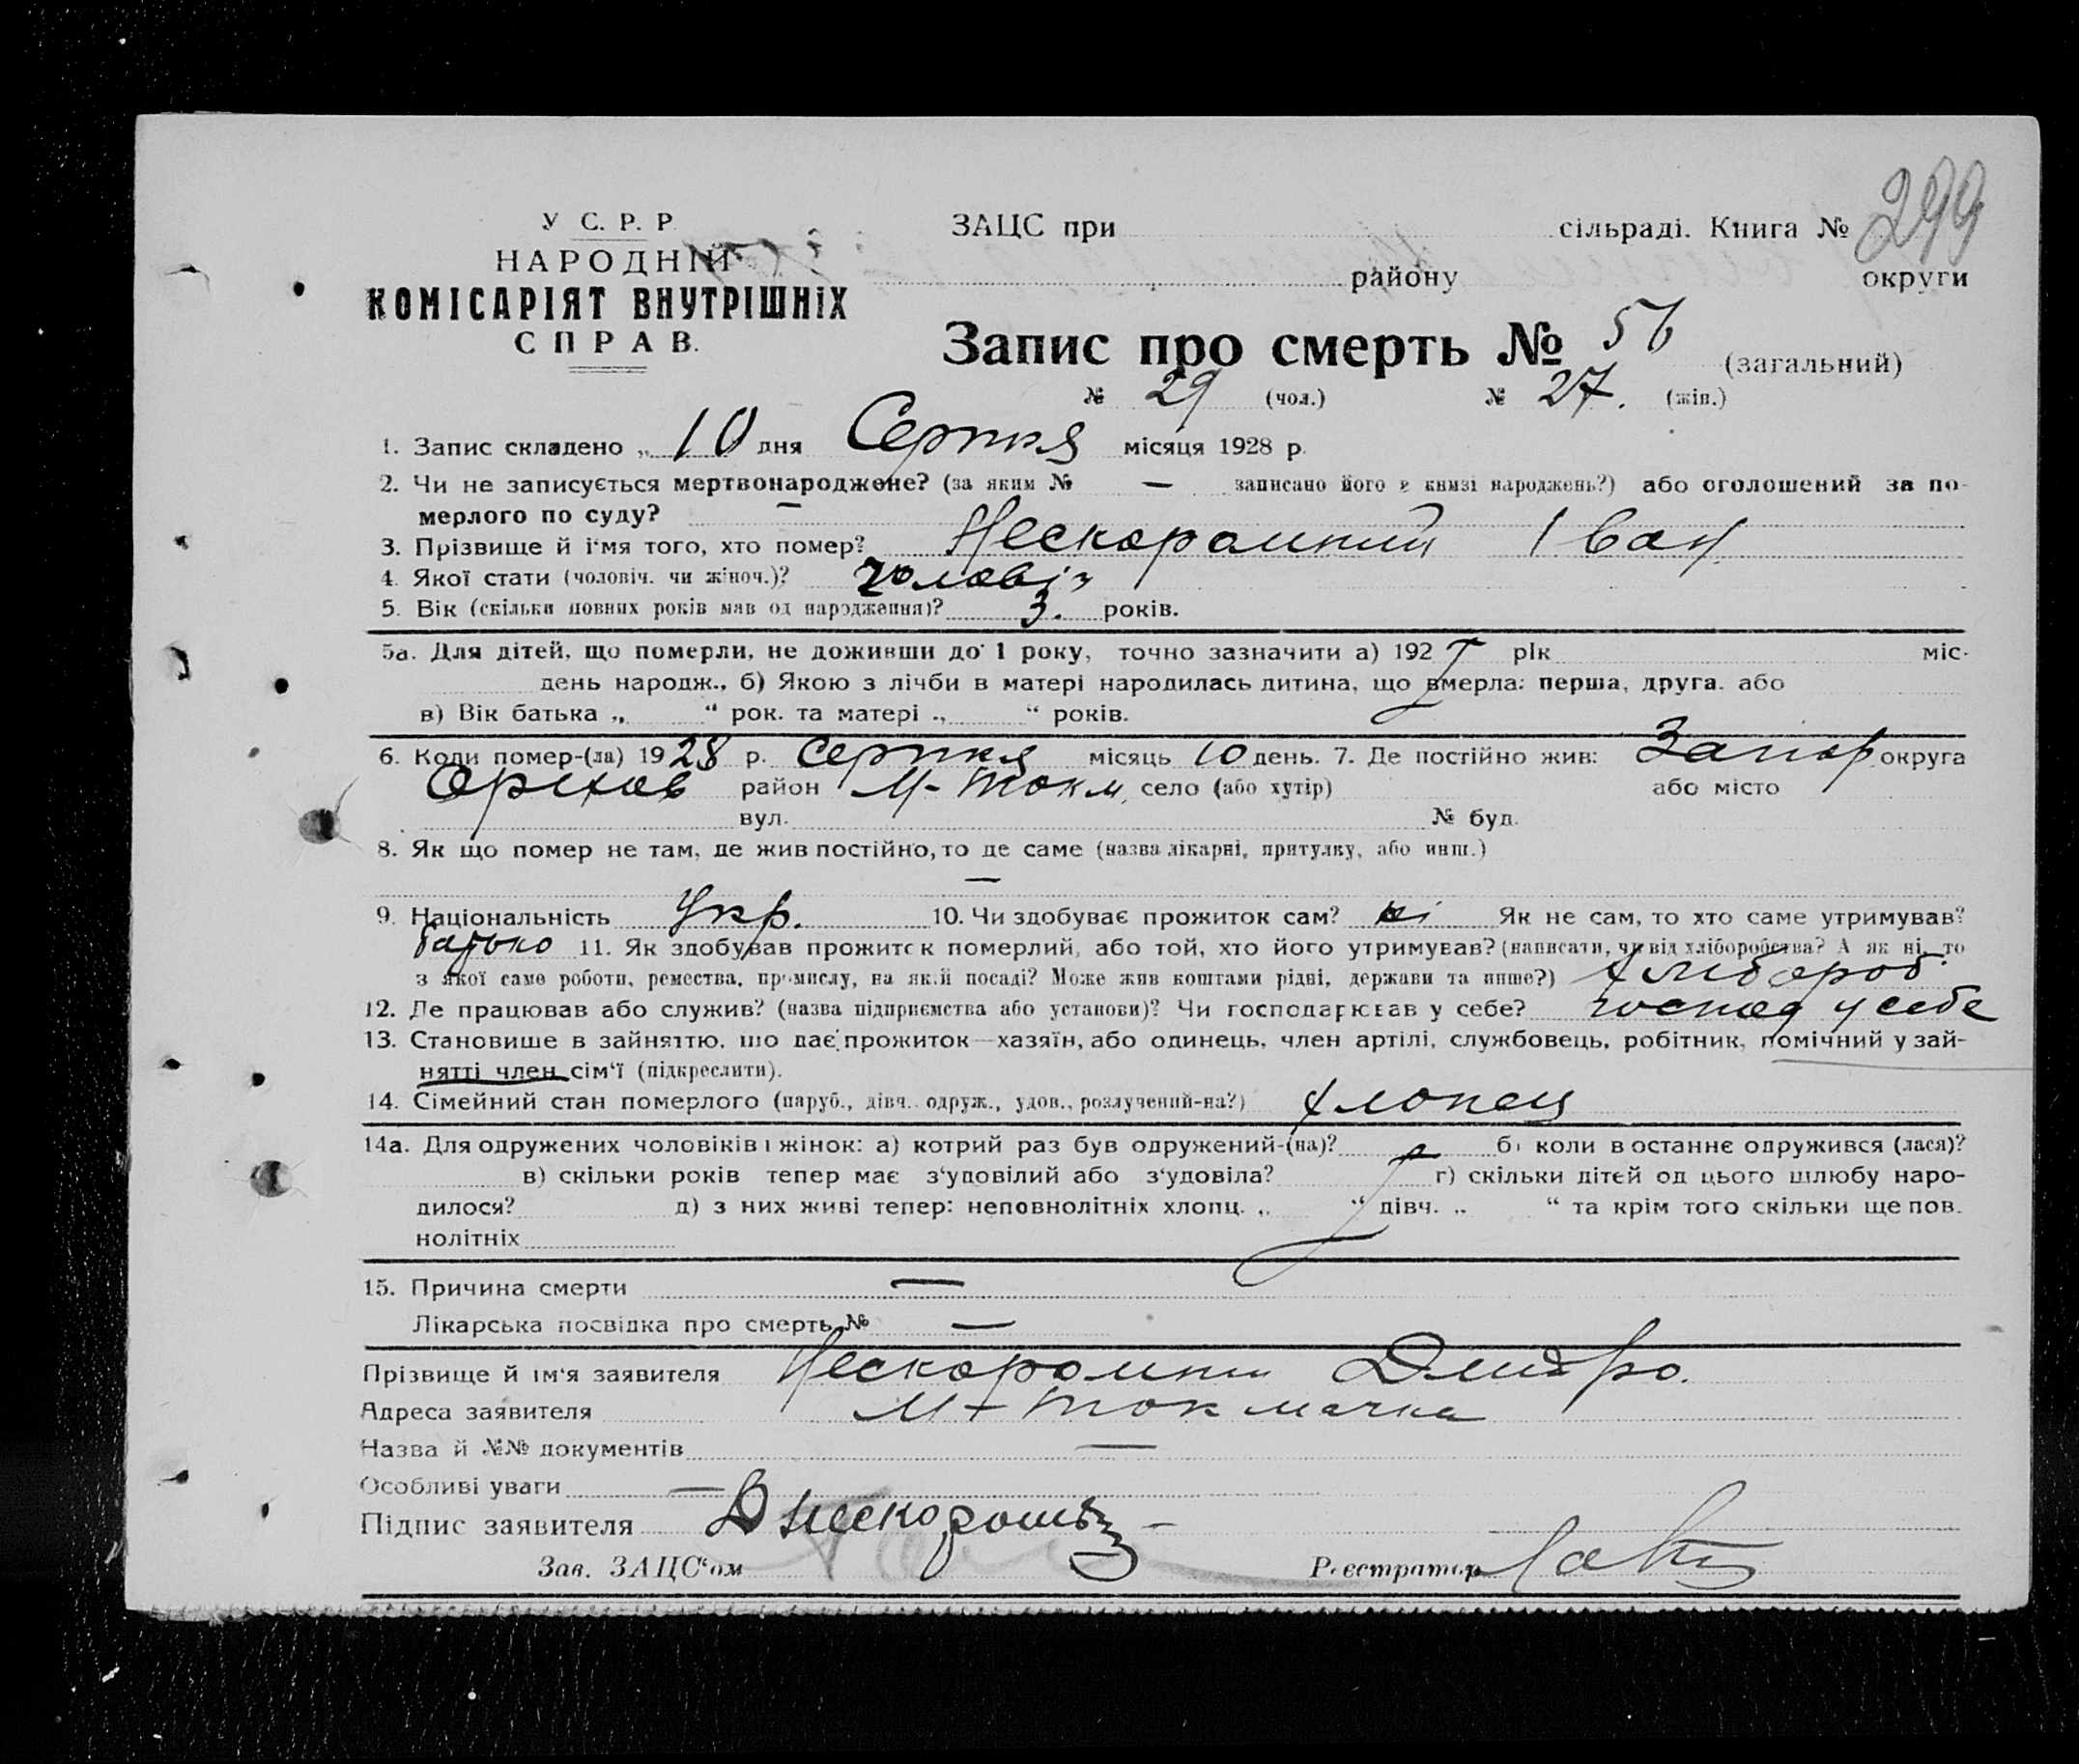 299
У С. Р. Р
НАРОДНІЙ
КОМІСАРІЯТ ВНУТРІШНІХ
СПРАВ.
ЗАЦС при сільраді. Книга №
району округи
Запис про смерть № 56 (загальний)
№ 29 (чол.) № 27. (жін.)
1. Запис складено „ 10 дня Серпня місяця 1928 р.
2. Чи не записується мертвонароджене? (за яким № — записано його в книзі народжень?) або оголошений за по-
мерлого по суду? —
3. Прізвище й ім'я того, хто помер? Нескоромний Іван
4. Якої стати (чоловіч. чи жіноч.)? чоловіч
5. Вік (скільки повних років мав од народження)? 3. років.
5а. Для дітей, що померли, не доживши до 1 року, точно зазначити а) 192 рік міс-
день народж., б) Якою з лічби в матері народилась дитина, що вмерла: перша, друга. або
в) Вік батька „ “ рок. та матері „ “ років.
6. Коли помер-(ла) 1928 р. Серпня місяць 10 день. 7. Де постійно жив: Запор округа
Оріхов район М-Токм. село (або хутір) або місто
вул. № буд.
8. Як що помер не там, де жив постійно, то де саме (назва лікарні, притулку, або инш.)
—
9. Національність Укр. 10. Чи здобуває прожиток сам? ні Як не сам, то хто саме утримував?
батько 11. Як здобував прожиток померлий, або той, хто його утримував? (написати, чи від хліборобства? А як ні, то
з якої саме роботи, ремества, промислу, на якій посаді? Може жив коштами рідні, держави та инше?) хлібороб
12. Де працював або служив? (назва підприємства або установи)? Чи господарював у себе? господ у себе
13. Становише в зайняттю, що дає прожиток—хазяїн, або одинець, член артілі, службовець, робітник, помічний у зай-
нятті член сім‘ї (підкреслити).
14. Сімейний стан померлого (паруб., дівч. одруж., удов., розлучений-на?) хлопець
14а. Для одружених чоловіків і жінок: а) котрий раз був одружений-(на)? б) коли востаннє одружився (лася)?
в) скільки років тепер має з‘удовілий або з‘удовіла? г) скільки дітей од цього шлюбу наро-
дилося? д) з них живі тепер: неповнолітніх хлопц. „ “ дівч. „ “ та крім того скільки ще пов.
нолітніх
15. Причина смерти —
Лікарська посвідка про смерть № —
Прізвище й ім‘я заявителя Нескоромни Дмитро.
Адреса заявителя М-Токмачка
Назва й №№ документів —
Особливі уваги —
Підпис заявителя Д Нескоромн
Зав. ЗАЦС‘ом Реєстратор